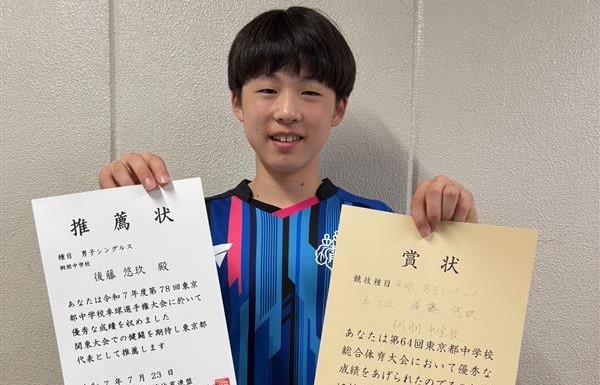 推薦状
種目 男子シングルス
桐朋中学校
後藤 悠玖 殿
あなたは令和7年度第78回東京
都中学校卓球選手権大会に於いて
優秀な成績を収めました
関東大会での健闘を期待し東京都
代表として推薦します
7年 7月 23日
賞状
競技種目 卓球 男子シングルス
後藤 悠玖
桐朋中学校
あなたは第64回東京都中学校
総合体育大会において優秀な
成績をあげられたので